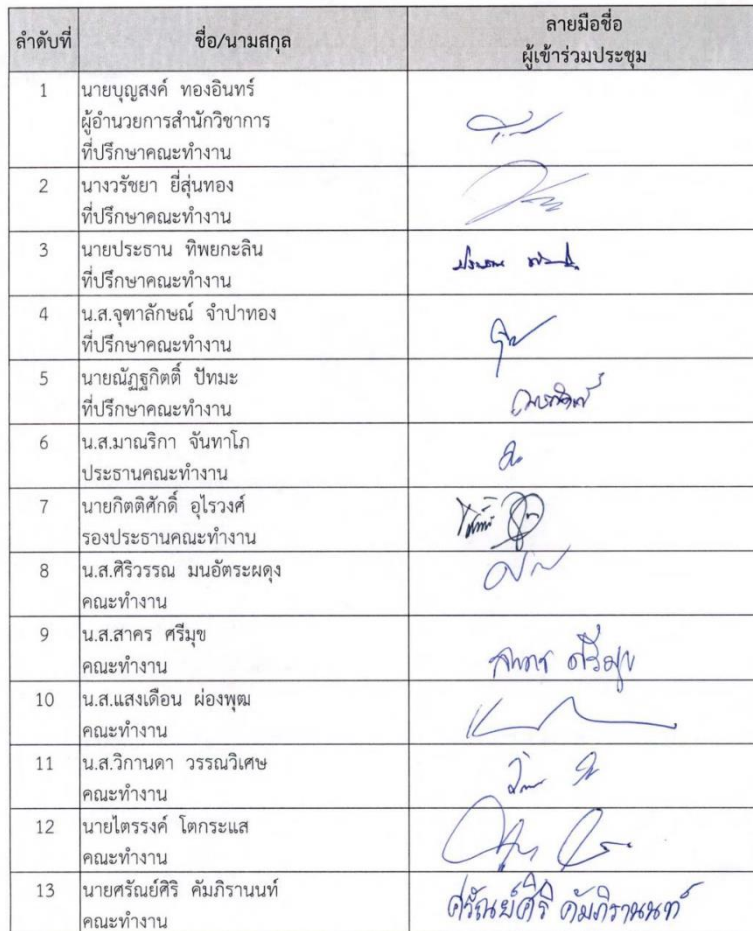 ลำดับที่ ชื่อ/นามสกุล ลายมือชื่อ
ผู้เข้าร่วมประชุม
1 นายบุญสงค์ ทองอินทร์
ผู้อำนวยการสำนักวิชาการ
ที่ปรึกษาคณะทำงาน
2 นางวรัชยา ยี่สุ่นทอง
ที่ปรึกษาคณะทำงาน
3 นายประธาน ทิพยกะลิน
ที่ปรึกษาคณะทำงาน
4 น.ส.จุฑาลักษณ์ จำปาทอง
ที่ปรึกษาคณะทำงาน
5 นายณัฏฐกิตติ์ ปัทมะ
ที่ปรึกษาคณะทำงาน
6 น.ส.มาณริกา จันทาโภ
ประธานคณะทำงาน
7 นายกิตติศักดิ์ อุไรวงศ์
รองประธานคณะทำงาน
8 น.ส.ศิริวรรณ มนอัตระผดุง
คณะทำงาน
9 น.ส.สาคร ศรีมุข
คณะทำงาน สาคร ศรีมุข
10 น.ส.แสงเดือน ผ่องพุฒ
คณะทำงาน
11 น.ส.วิกานดา วรรณวิเศษ
คณะทำงาน
12 นายไตรรงค์ โตกระแส
คณะทำงาน
13 นายศรัณย์ศิริ คัมภิรานนท์ ศรัณย์ศิริ คัมภิรานนท์
คณะทำงาน